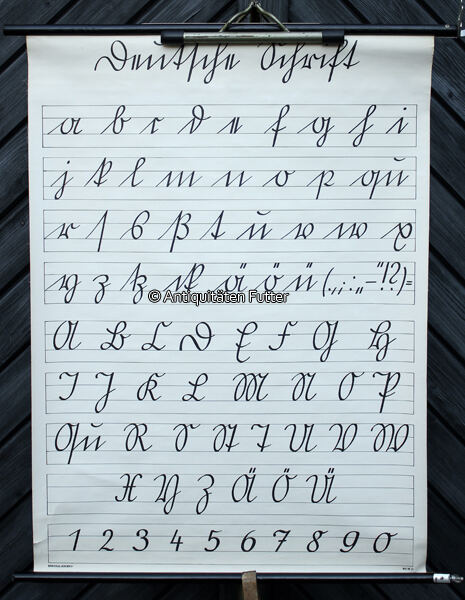 Deutsche Schrift
a b c d e f g h i
j k l m n o p qu
r ſ s ß t u v w x
y z tz ck ä ö ü (.,;:„–“!?)=
© Antiquitäten Futter
A B C D E F G H
I J K L M N O P
Qu R S St T U V W
X Y Z Ä Ö Ü
1 2 3 4 5 6 7 8 9 0